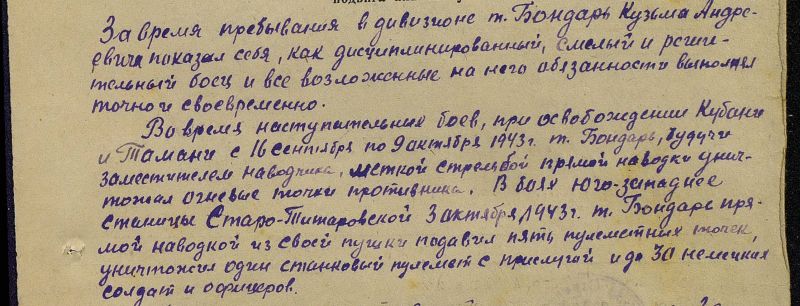 За время пребывания в дивизионе т. Бондарь Кузьма Андре-
евич показал себя, как дисциплинированный, смелый и реши-
тельный боец и все возложенные на него обязанности выполнял
точно и своевременно.
Во время наступательных боев, при освобождении Кубани
и Тамани с 16 сентября по 9 октября 1943г. т. Бондарь, будучи
заместителем наводчика, меткой стрельбой прямой наводки унич-
тожал огневые точки противника. В боях юго-западнее
станицы Старо-Титаровской 3 октября 1943г. т. Бондарь пря-
мой наводкой из своей пушки подавил пять пулеметных точек,
уничтожил один станковый пулемет с прислугой и до 30 немецких
солдат и офицеров.